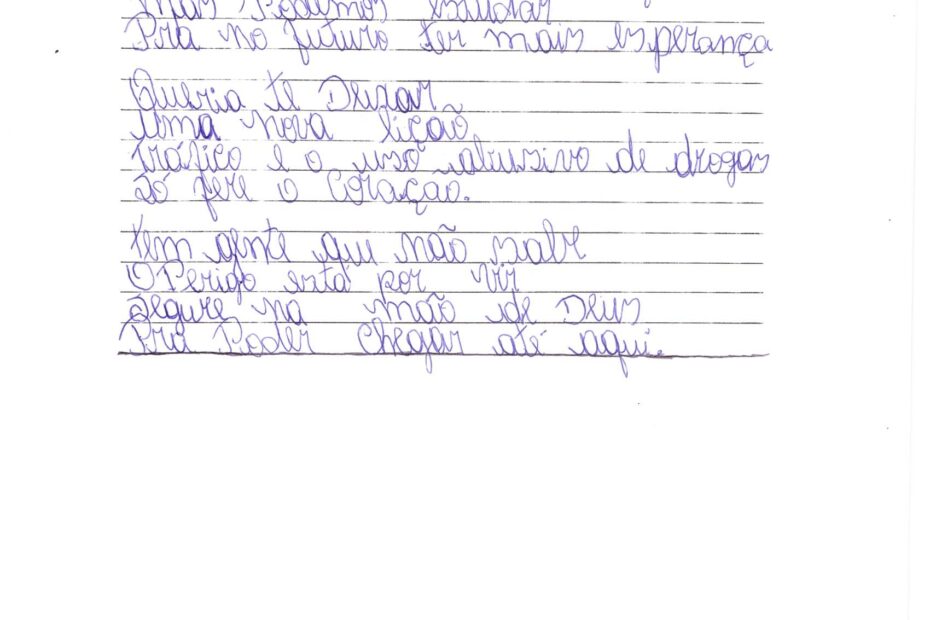 Mas Podemos estudar
Pra no futuro ter mais esperança
Queria te Deixar
uma nova lição
tráfico e o uso abusivo de drogas
só fere o Coração.
tem gente que não sabe
O Perigo está por vir
Segure na mão de Deus
Pra Poder Chegar até aqui.